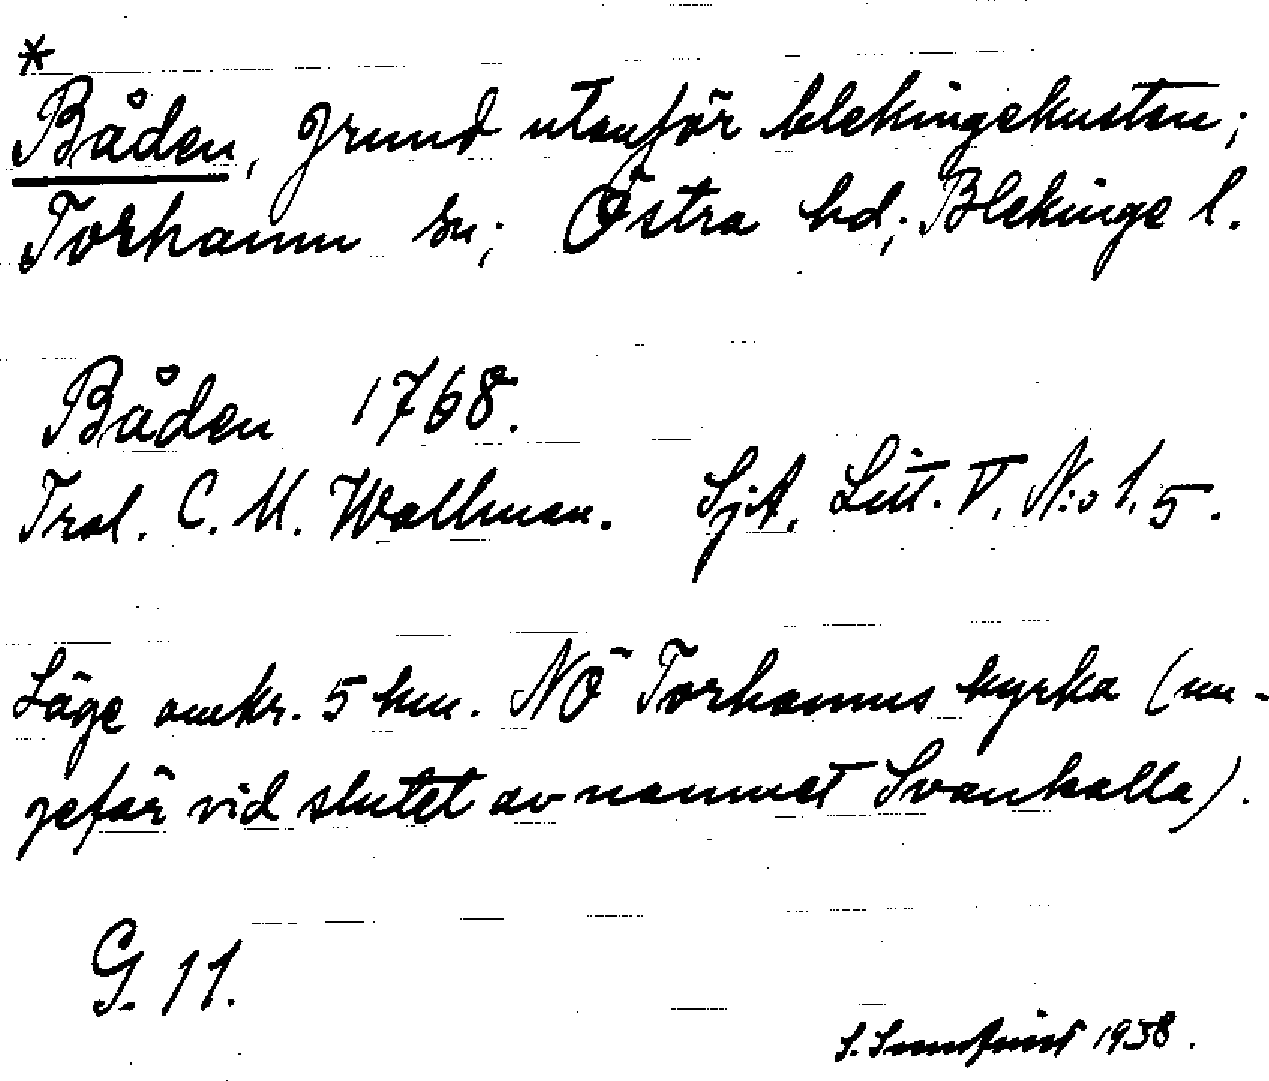 *
Båden, grund utanför blekingekusten;
Torhamn sn; Östra hd; Blekinge l.
Båden 1768.
Trol. C. M. Wallman. Sjk. Litt. V. N:o 1.5.
Läge omkr. 5 km. NÖ Torhamns kyrka (un-
gefär vid slutet av namnet Svankalla).
G. 11.
S. 1938.